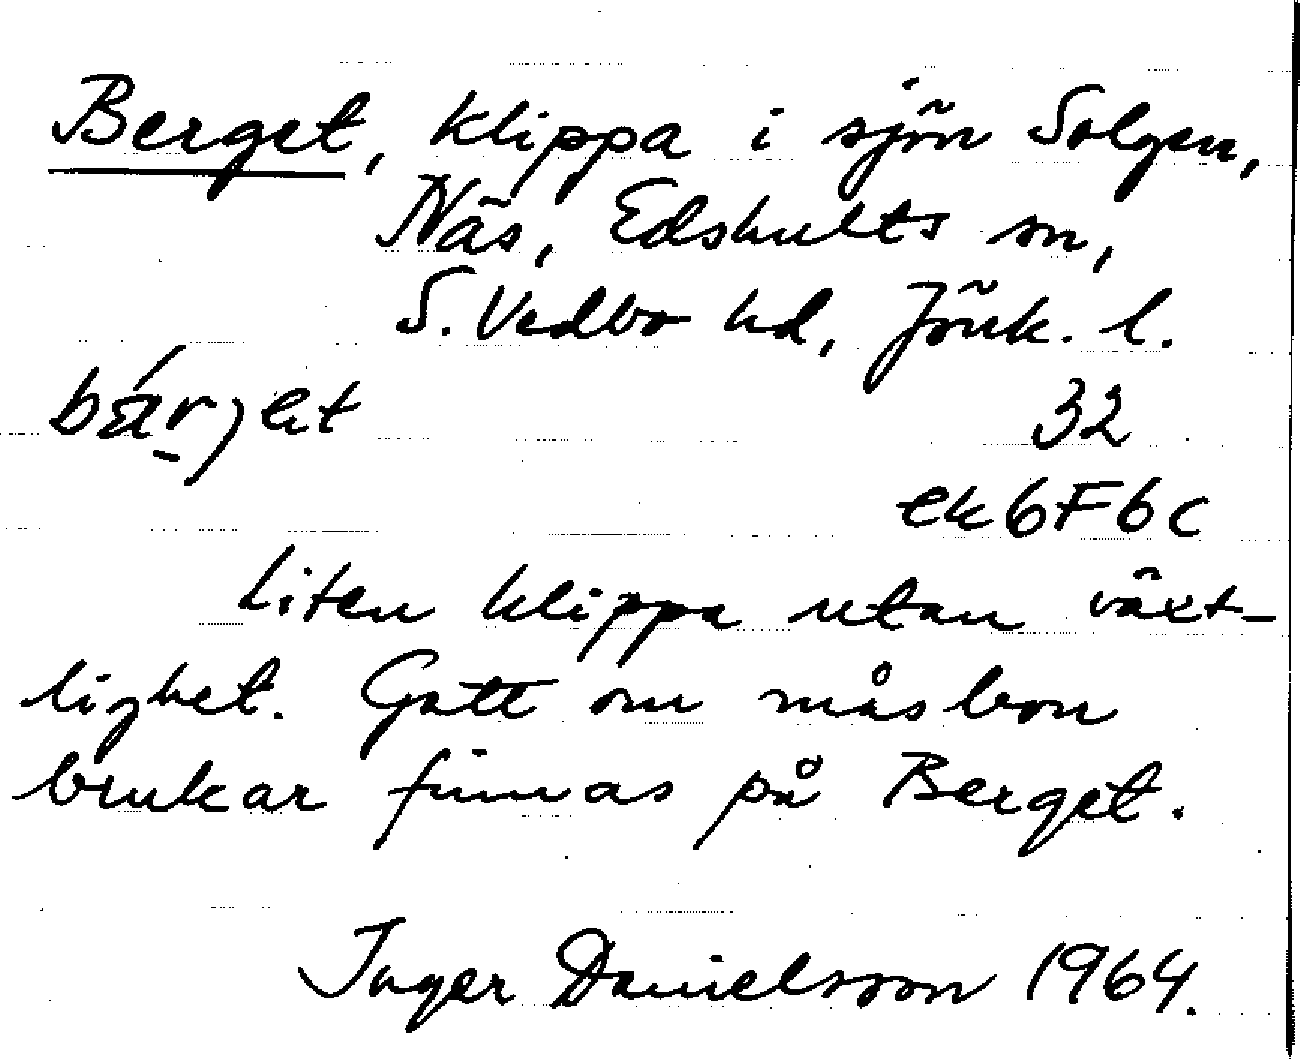 Berget, klippa i sjön Solgen,
Näs, Edshults sn,
S. Vedbo hd, Jönk. l.
bär̠jet
32
ek6F6c
Liten klippa utan växt-
lighet. Gott om måsbon
brukar finnas på Berget.
Inger Danielsson 1964.